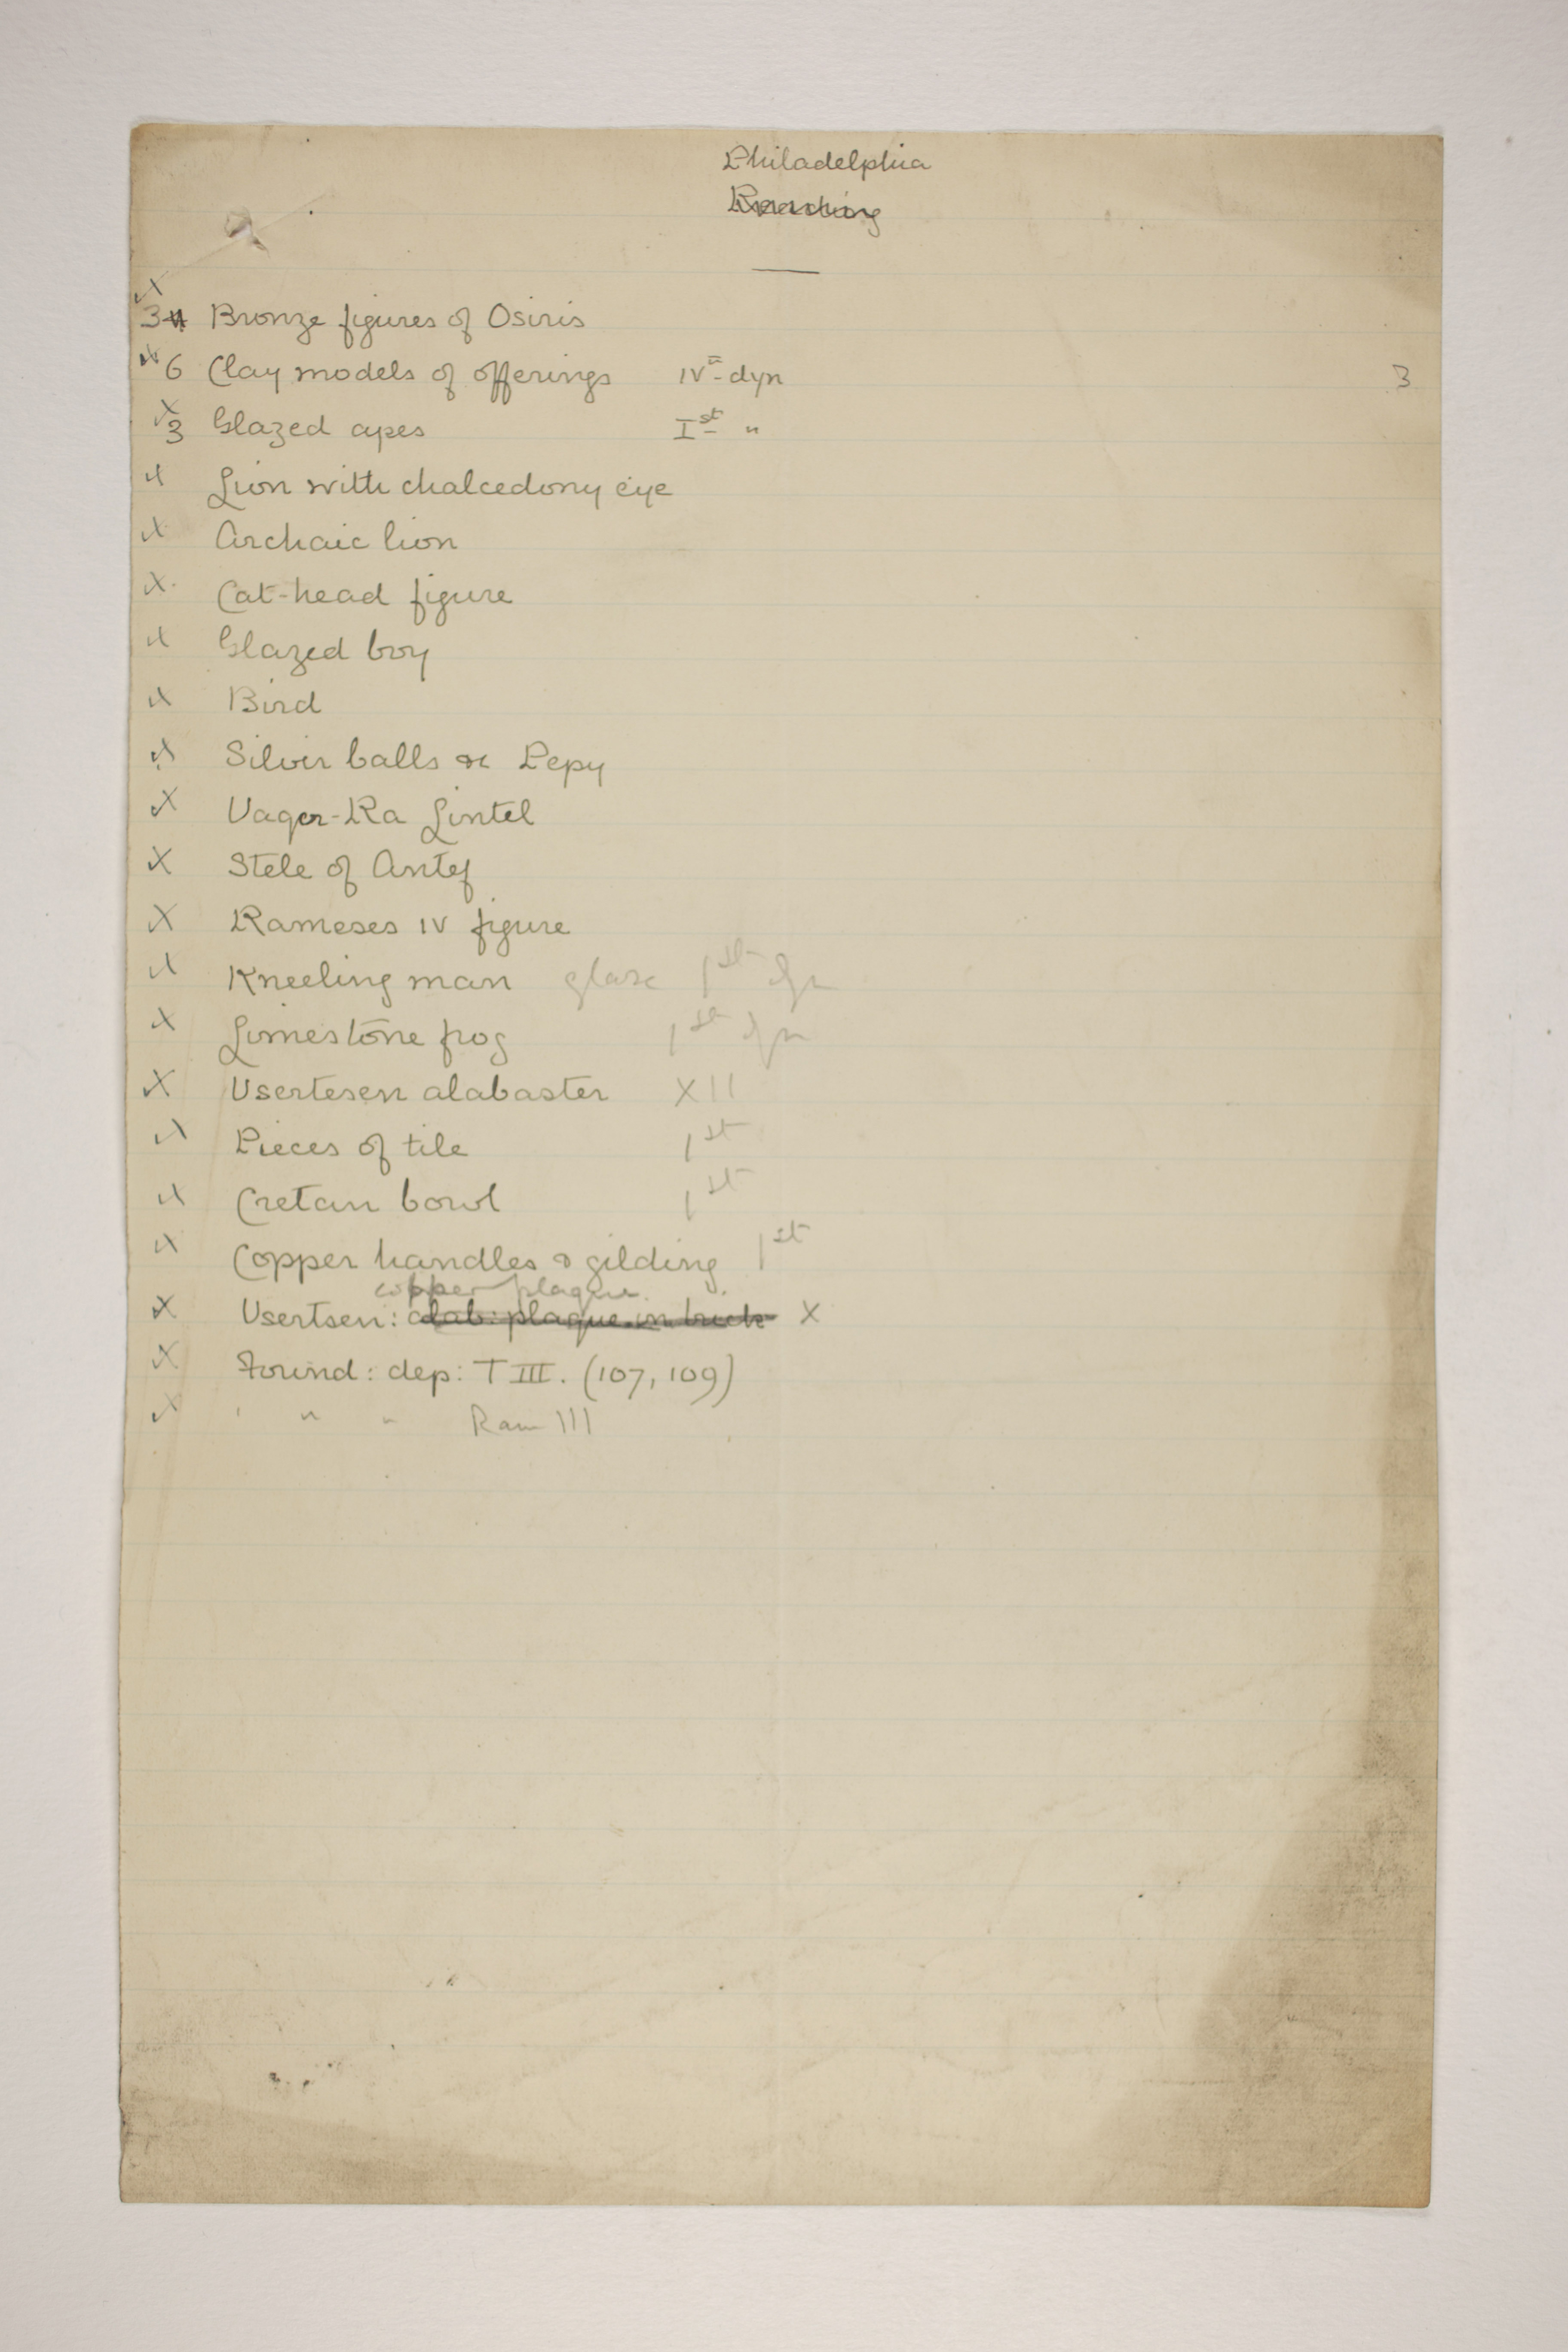 Philadelphia
3 Bronze figures of Osiris
6 Clay models of offerings IVth dyn 3
3 Glazed apes Ist "
Lion with chalcedony eye
Archaic lion
Cat-head figure
Glazed boy
Bird
Silver balls &c Pepy
Uager-Ra Lintel
Stele of Antef
Rameses IV figure
Kneeling man glaze 1st dyn
Limestone frog 1st dyn
Usertesen alabaster XII
Pieces of tile 1st
Cretan bowl 1st
Copper handles & gilding 1st
copper plaque.
Usertsen: alab: plaque in brick X
Found: dep: T III. (107, 109)
" " " Ram III